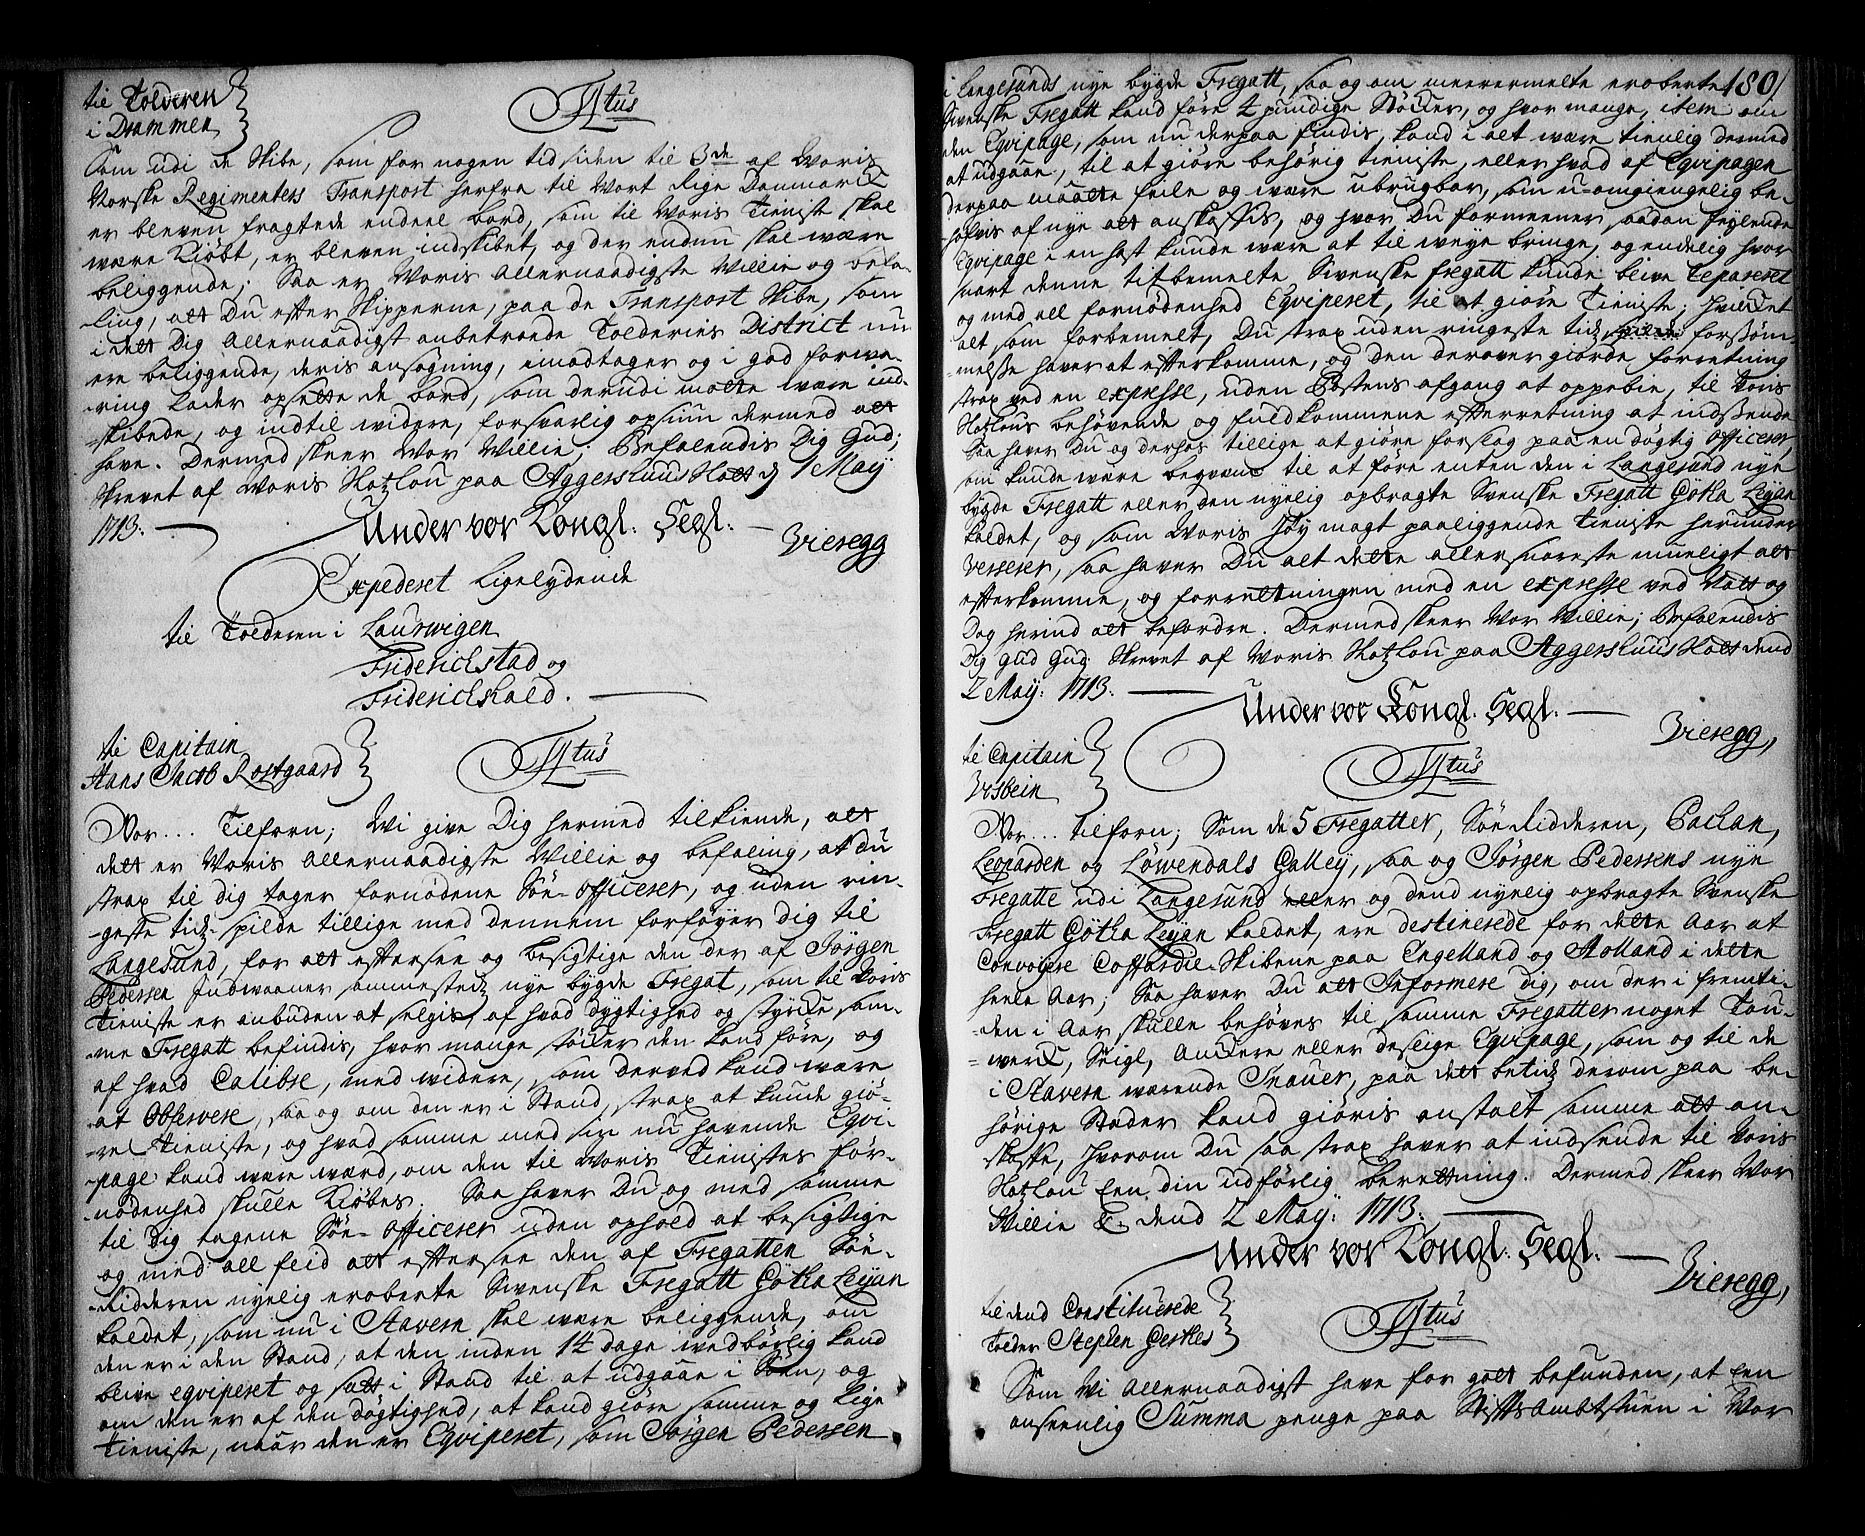 til Tolderen
i Drammen
F4tus
Som udi de Skibe, som for nogen tid siden til 3de af Woris
Norske Regimenters Transport herfra til Wort Rige Danmarck
er bleven fragtede endeel bord, som til Woris Tieniste skal
være Kiøbt, er bleven indskibet, og der endnu skal være
beliggende; Saa er Woris Allernaadigste Willie og befa-
ling, att Du efter Skipperne, paa de Transport Skibe, som
i dett Dig Allernaadigst anbetroede Tolderies District nu
ere beliggende, deris ansøgning, emodtager og i god forva-
ring lader opsette de bord, som derudi motte være ind-
-skibede, og indtil widere, forsvarlig opsiun dermed att
have. Dermed skeer Wor Willie, Befalendis Dig Gud;
Skrevet af Woris Slotzlov paa Aggershuus Slott d 1 Maÿ
1713.
Under vor Kongl: Segl:
Vieregg
Expederet Ligelydende
til Tolderen i Laurwigen
Friderichstad og
Friderichshald.
til Capitain
Hans Jacob Rostgaard
F4tus
Wor... Tilforn; Wi give Dig hermed tilkiende, att
dett er Woris Allernaadigste Willie og befaling, at Du
strax til dig tager fornødene Søe-Officerer, og uden rin-
-geste tids-spilde tillige med dennem forføyer dig til
Langesund, for att eftersee og besigtige den der af Jørgen
Pedersen Indvaaner sammestedz nye bygde Fregat, som til Woris
Tieniste er anbuden at selgis, af hvad dygtighed og styrcke, sam-
-me Fregatt befindis, hvor mange støcker den kand føre, og
af hvad Calibre, med widere, som derved kand være
at Observere, saa og om den er i Stand, strax at kunde giø-
-re tieniste, og hvad samme med sin nu havende Eqvi-
-page kand være værd, om den til Woris Tienistes for-
-nødenhed skulle Kiøbes; Saa haver Du og med samme
til dig tagene Søe-Officerer uden ophold at besigtige
og med all fliid att eftersee den af Fregatten Søe-
-Ridderen nyelig erobrte Svenske Fregatt Götha Leÿan
kaldet, som nu i Stavern skal være beliggende, om
den er i den Stand, at den inden 14 dage wedbørlig kand
blive eqviperet og satt i Stand til at udgaae i Søen, og
om den er af den døgtighed, at kand giøre samme og lige
tieniste, naar den er Eqviperet, som Jørgen Pedersen
180
i Langesunds nye bygde Fregatt, saa og om meerermelte erobrte
Svenske Fregatt kand føre 4 pundige Støcker, og hvor mange, item om
den Eqvipage, som nu derpaa findis, kand i alt være tienlig dermed
at udgaae, til at giøre behørig tieniste, eller hvad af Eqvipagen
derpaa maatte feile og være ubrugbar, som u-omgiengelig be-
høfvis af nye att anskaffis, og hvor Du formeener saadan feylende
Eqvipage i en hast kunde være at til weye bringe, og endelig hvor
snart denne titbemelte Svenske fregatt kunde blive Repareret
og med all fornødenhed Eqviperet, til at giøre Tieniste; hvilcket
alt som forbemelt, Du strax uden ringeste tids forsøm-
-melse haver at efterkomme, og den derover giorde forretning
strax ved en expresse, uden Postens afgang at oppebie, til Woris
Slotzlov behøvende og fuldkommene efterretning at indsende
Saa haver Du og derhos tillige at giøre forslag paa en døgtig Officerer,
som kunde være beqvem til at føre enten den i Langesund nye
bygde Fregatt eller den nyelig opbragte Svenske Fregatt Götha Leÿan
kaldet, og som Woris Høy magt paaliggende Tieniste herunder
verserer, saa haver Du alt dette allersnareste mueligt att
efterkomme, og forrettningen med en expresse ved Natt og
Dag herind att befordre. Dermed skeer Wor Willie; Befalendis
Dig Gud Gud Skrevet af Woris Slotzlov paa Aggershuus Slott dend
2 Maÿ: 1713.
Under vor Kongl. Segl.
Vieregg,
til Capitain
Vrsbein
F4tus
Wor... tilforn; Som de 5 Fregatter, Søe-Ridderen, Packan,
Leoparden og Löwendals Galleÿ, saa og Jørgen Pedersens nye
Fregatte udi Langesund eller og dend nyelig opbragte Svenske
Fregatt Götha Leÿan kaldet, ere destinerede for dette Aar at
Convoÿere Coffardie-Skibene paa Engelland og Holland i dette
heele Aar; Saa haver Du att Informere dig, om der i fremti-
den i Aar skulle behøves til samme Fregatter noget Tou-
-werck, Seigl, Anckere eller deslige Eqvipage, som og til de
i Stavern wærende Snauer, paa dett betids derom paa be-
hørige Stæder kand giøris anstalt samme att an-
skaffe, hvorom Du saa strax haver at indsende til Woris
Slotzlou Een din udførlig berettning. Dermed skeer Wor
Willie &. dend 2 Maÿ: 1713.
Under vor Kongl: Segl:
Vieregg,
til dend Constituerede
Tolder Stephen Gerkes
F4tus
Som Wi Allernaadigst have for gott befunden, at Een
anseenlig Summa penge paa StiftsAmbtstuen i Wor